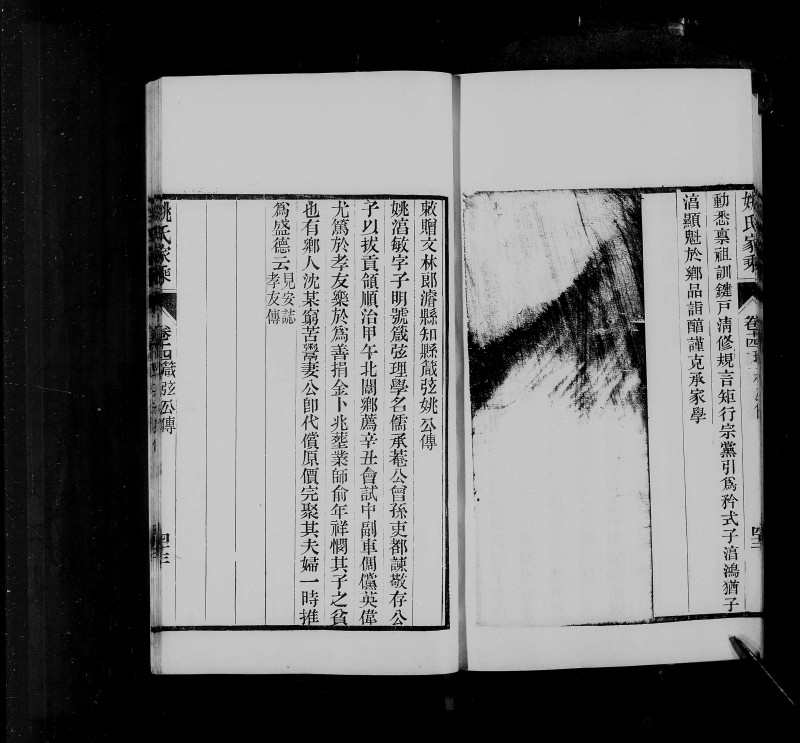 姚氏家乘
卷十四
四二
動悉稟祖訓鍵戶清修規言矩行宗黨引為矜式子涫鴻猶子
涫顯魁於鄉品詣醇謹克承家學
敕贈文林郎濬縣知縣箴弦姚公傳
姚涫敏字子明號箴弦理學名儒承菴公曾孫吏都諫敬存公
子以拔貢領順治甲午北闈鄉薦辛丑會試中副車倜儻英偉
尤篤於孝友樂於為善捐金卜兆塟業師俞年祥憫其子之貧
也有鄉人沈某窮苦鬻妻公卽代償原價完聚其夫婦一時推
為盛德云見安誌
孝友傳
姚氏家乘
卷十四 箴弦公傳
四三